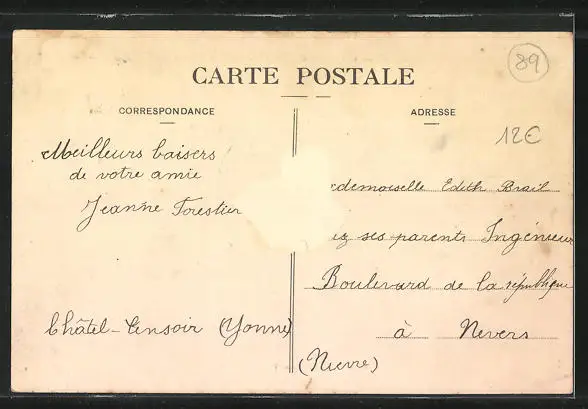 CARTE POSTALE
89
CORRESPONDANCE
ADRESSE
12€
Meilleurs baisers
de votre amie
Jeanne Forestier
Châtel-Censoir (Yonne)
demoiselle Edith Brail
ez ses parents Ingénieur
Boulevard de la république
à Nevers
(Nievre)